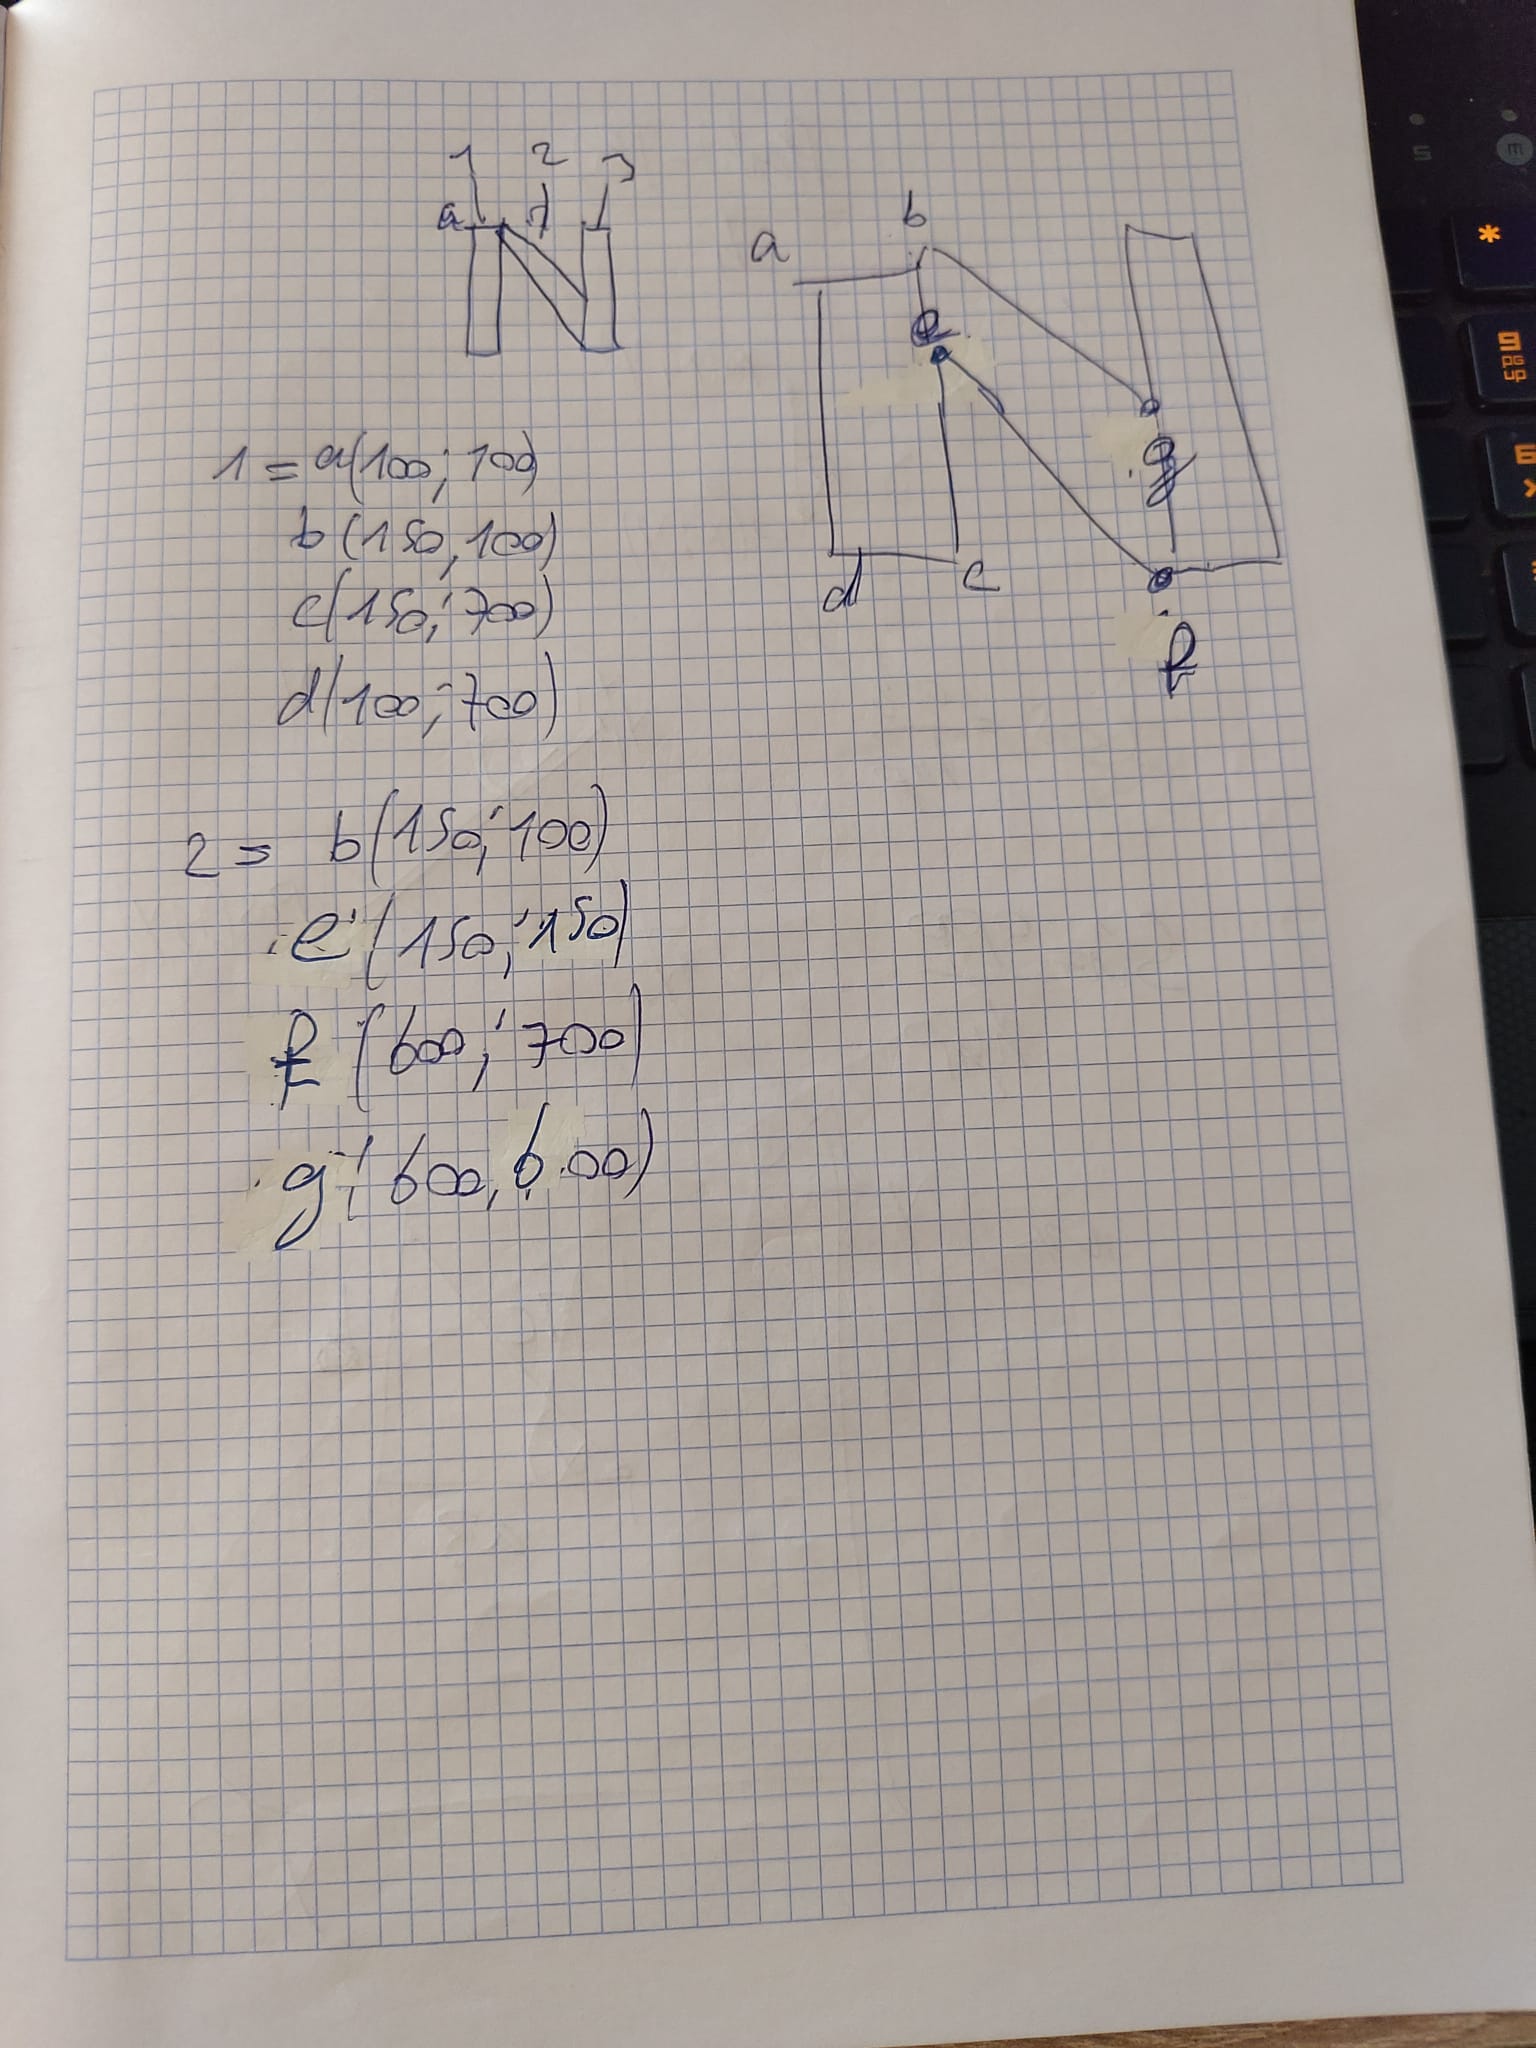 1 2 3
a
a b
e
g
d c
f
1 = a(100; 100)
b (150, 100)
c(150; 700)
d(100; 700)
2 = b(150; 100)
e (150; 150)
f (600; 700)
g (600, 600)
*
9
PG
UP
6
5
m